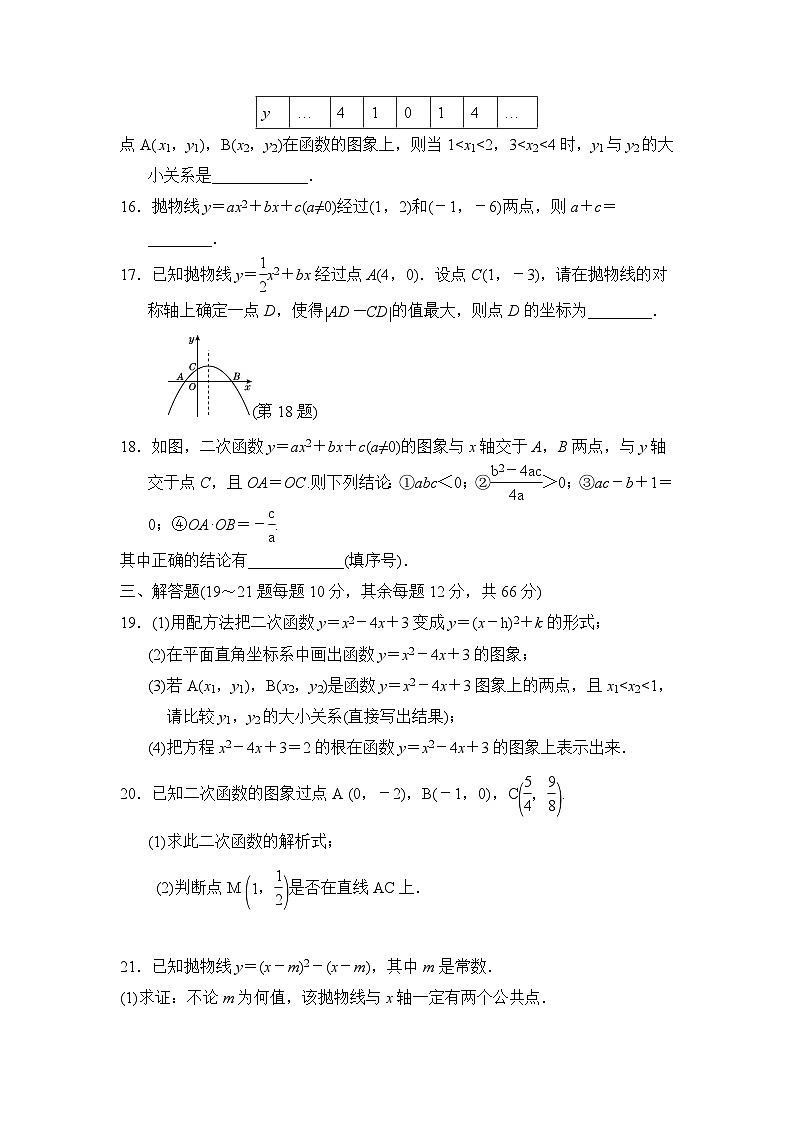 y … 4 1 0 1 4 …
点 A(x₁，y₁)，B(x₂，y₂)在函数的图象上，则当 1<x₁<2，3<x₂<4 时，y₁ 与 y₂ 的大
小关系是____________．
16．抛物线 y＝ax²＋bx＋c(a≠0)经过(1，2)和(－1，－6)两点，则 a＋c＝
________．
17．已知抛物线 y＝\frac{1}{2}x²＋bx 经过点 A(4，0)．设点 C(1，－3)，请在抛物线的对
称轴上确定一点 D，使得|AD－CD|的值最大，则点 D 的坐标为________．
y
C
A O B x
(第 18 题)
18．如图，二次函数 y＝ax²＋bx＋c(a≠0)的图象与 x 轴交于 A，B 两点，与 y 轴
交于点 C，且 OA＝OC.则下列结论：①abc＜0；②\frac{b²－4ac}{4a}＞0；③ac－b＋1＝
0；④OA·OB＝－\frac{c}{a}.
其中正确的结论有____________(填序号)．
三、解答题(19～21 题每题 10 分，其余每题 12 分，共 66 分)
19．(1)用配方法把二次函数 y＝x²－4x＋3 变成 y＝(x－h)²＋k 的形式；
(2)在平面直角坐标系中画出函数 y＝x²－4x＋3 的图象；
(3)若 A(x₁，y₁)，B(x₂，y₂)是函数 y＝x²－4x＋3 图象上的两点，且 x₁<x₂<1，
请比较 y₁，y₂ 的大小关系(直接写出结果)；
(4)把方程 x²－4x＋3＝2 的根在函数 y＝x²－4x＋3 的图象上表示出来．
20．已知二次函数的图象过点 A (0，－2)，B(－1，0)，C(\frac{5}{4}，\frac{9}{8}).
(1)求此二次函数的解析式；
(2)判断点 M (1，\frac{1}{2})是否在直线 AC 上．
21．已知抛物线 y＝(x－m)²－(x－m)，其中 m 是常数．
(1)求证：不论 m 为何值，该抛物线与 x 轴一定有两个公共点．